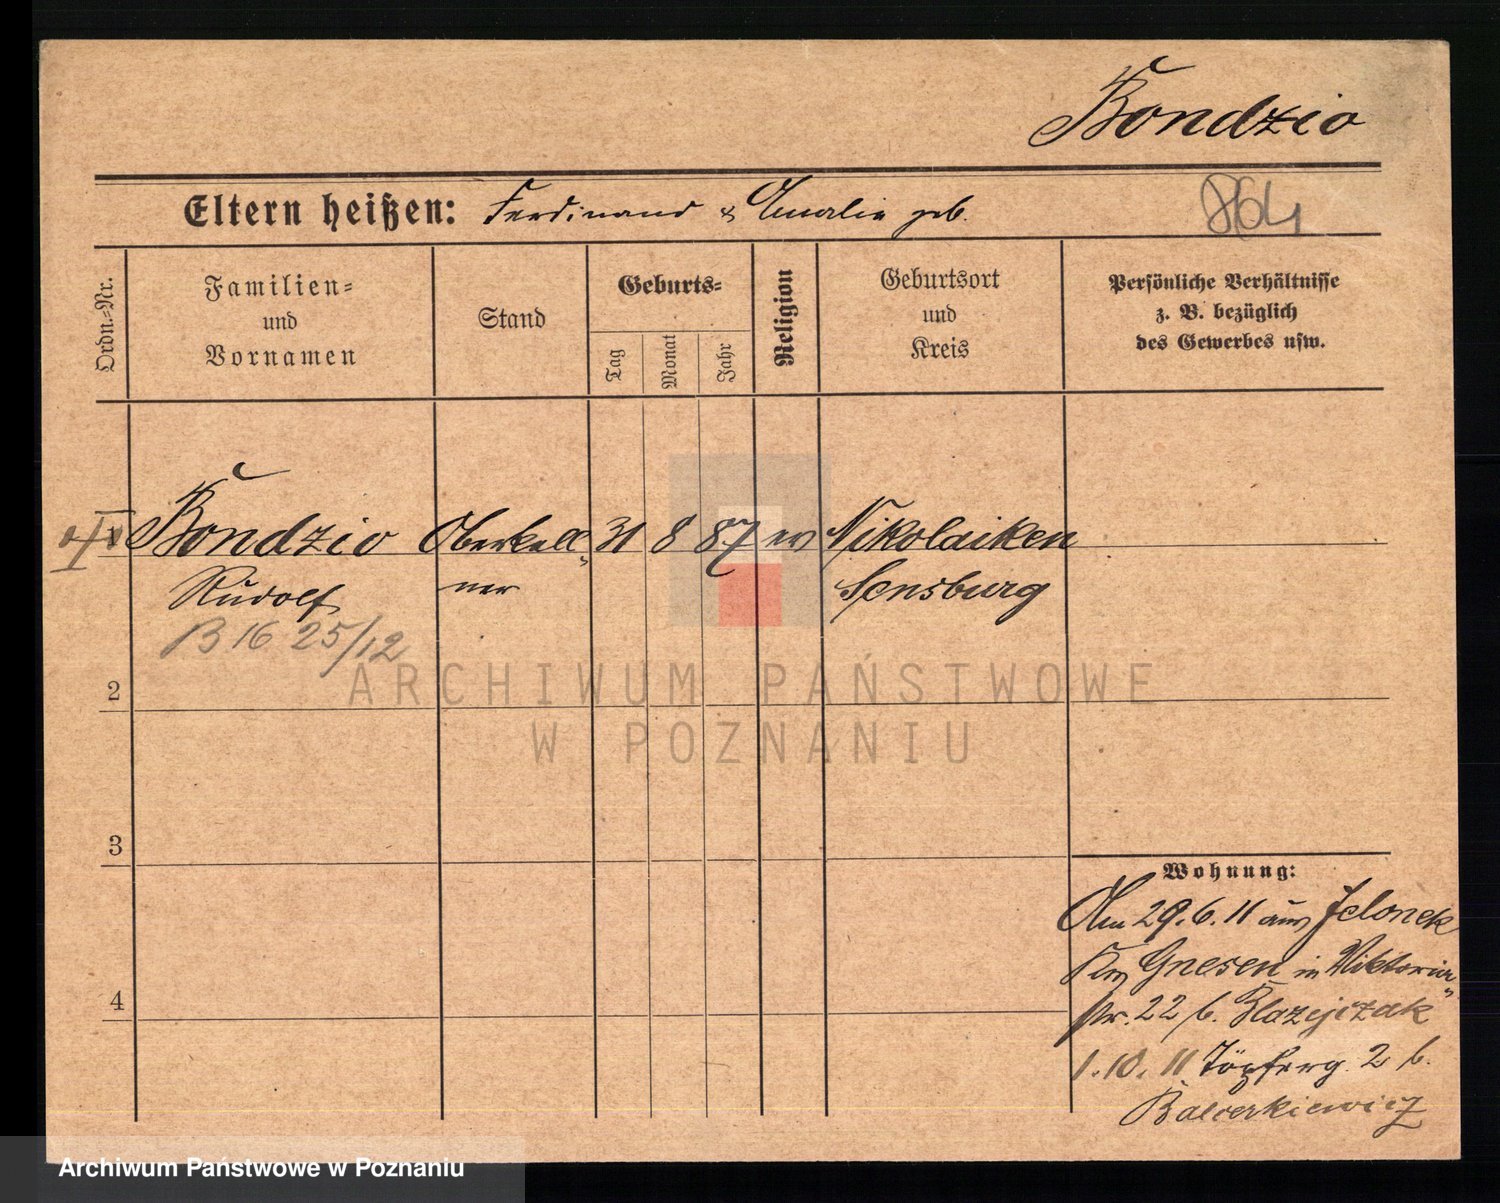 Bondzio
Eltern heißen: Ferdinand & Amalie geb.
864
Ordn.-Nr.
Familien-
und
Vornamen
Stand
Geburts-
Tag
Monat
Jahr
Religion
Geburtsort
und
Kreis
Persönliche Verhältnisse
z. B. bezüglich
des Gewerbes usw.
1 Bondzio Oberkell- 31 8 87 ev Nikolaiken
Rudolf ner Sensburg
B 16 25/12
2
ARCHIWUM PAŃSTWOWE
W POZNANIU
3
4
Wohnung:
Am 29.6.11 aus Jelonek
Krs Gnesen in Viktoria-
str. 22 b. Blazejczak
1.10.11 Töpferg. 2 b.
Balcerkiewicz
Archiwum Państwowe w Poznaniu